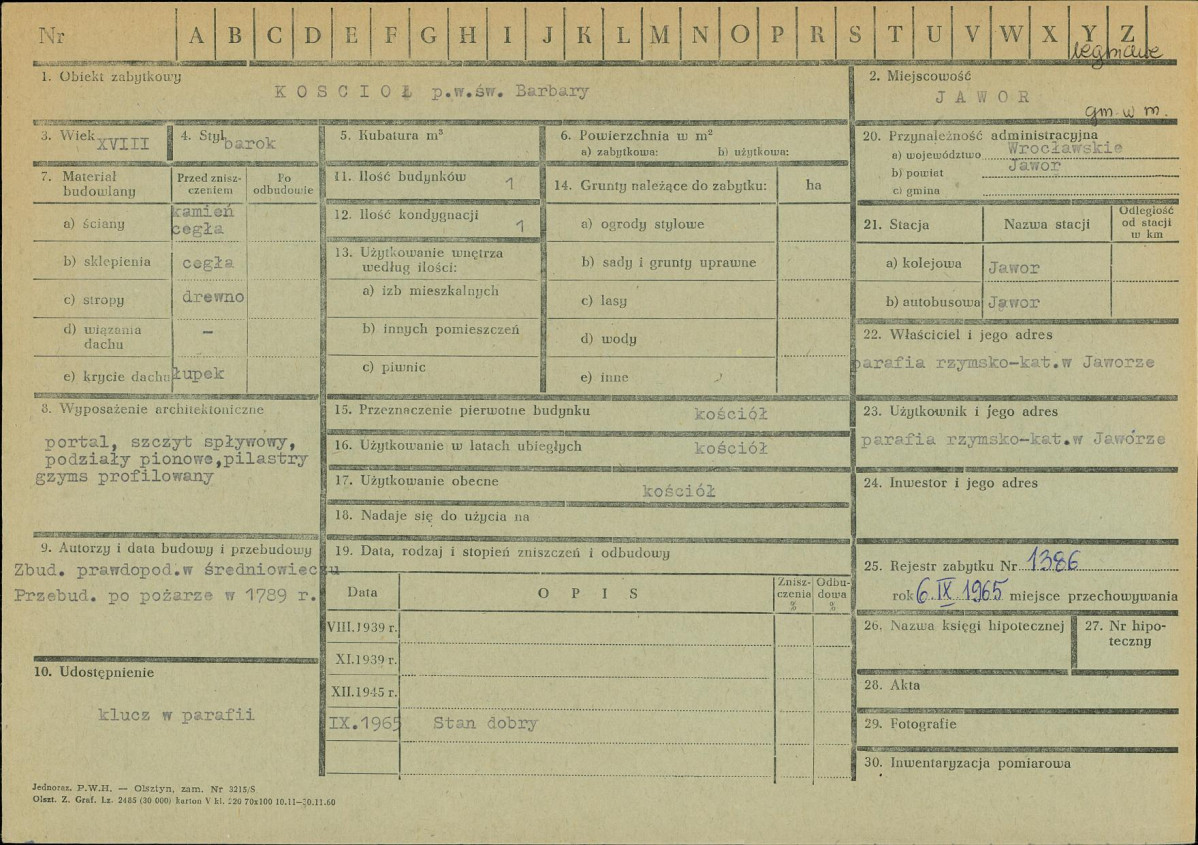 Nr A B C D E F G H I J K L M N O P R S T U V W X Y Z
legnickie
1. Obiekt zabytkowy
KOSCIOŁ p.w.św. Barbary
2. Miejscowość
JAWOR
gm. w m.
3. Wiek XVIII
4. Styl barok
5. Kubatura m³
6. Powierzchnia w m²
a) zabytkowa: b) użytkowa:
7. Materiał budowlany
Przed zniszczeniem
Po odbudowie
a) ściany kamień cegła
b) sklepienia cegła
c) stropy drewno
d) wiązania dachu –
e) krycie dachu łupek
8. Wyposażenie architektoniczne
portal, szczyt spływowy,
podziały pionowe,pilastry
gzyms profilowany
9. Autorzy i data budowy i przebudowy
Zbud. prawdopod.w średniowieczu
Przebud. po pożarze w 1789 r.
10. Udostępnienie
klucz w parafii
11. Ilość budynków 1
12. Ilość kondygnacji 1
13. Użytkowanie wnętrza
według ilości:
a) izb mieszkalnych
b) innych pomieszczeń
c) piwnic
14. Grunty należące do zabytku: ha
a) ogrody stylowe
b) sady i grunty uprawne
c) lasy
d) wody
e) inne
15. Przeznaczenie pierwotne budynku kościół
16. Użytkowanie w latach ubiegłych kościół
17. Użytkowanie obecne kościół
18. Nadaje się do użycia na
19. Data, rodzaj i stopień zniszczeń i odbudowy
Data OPIS Zniszczenia % Odbudowa %
VIII.1939 r.
XI.1939 r.
XII.1945 r.
IX.1965 Stan dobry
20. Przynależność administracyjna
a) województwo Wrocławskie
b) powiat Jawor
c) gmina
21. Stacja Nazwa stacji Odległość od stacji w km
a) kolejowa Jawor
b) autobusowa Jawor
22. Właściciel i jego adres
parafia rzymsko-kat.w Jaworze
23. Użytkownik i jego adres
parafia rzymsko-kat.w Jaworze
24. Inwestor i jego adres
25. Rejestr zabytku Nr 1386
rok 6.IX 1965 miejsce przechowywania
26. Nazwa księgi hipotecznej
27. Nr hipoteczny
28. Akta
29. Fotografie
30. Inwentaryzacja pomiarowa
Jednoraz. P.W.H. — Olsztyn, zam. Nr 3215/S
Olszt. Z. Graf. Lz. 2485 (30 000) karton V kl. 220 70x100 10.11—30.11.60